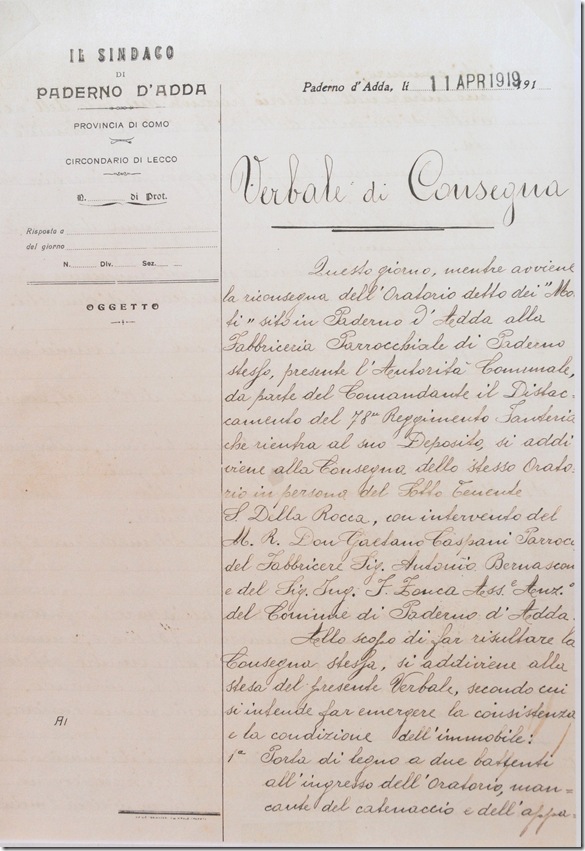 IL SINDACO
DI
PADERNO D'ADDA
PROVINCIA DI COMO
CIRCONDARIO DI LECCO
N. di Prot.
Risposta a
del giorno
N. Div. Sez.
OGGETTO
Al
Paderno d'Adda, li 11 APR 1919 191
Verbale di Consegna
Questo giorno, mentre avviene
la riconsegna dell'Oratorio detto dei "Mo
ti" sito in Paderno d'Adda alla
Fabbriceria Parrocchiale di Paderno
stesso, presente l'Autorità Comunale,
da parte del Comandante il Distac-
camento del 78mo Reggimento Fanteria
che rientra al suo Deposito, si addi
viene alla Consegna dello stesso Orato
rio in persona del Sotto Tenente
S. Della Rocca, con intervento del
M. R. Don Gaetano Caspani Parroc
del Fabbricere Sig. Antonio Bernascon
e del Sig. Ing. F. Zonca Ass.e Anz.e
del Comune di Paderno d'Adda.
Allo scopo di far risultare la
Consegna stessa, si addiviene alla
stesa del presente Verbale, secondo cui
si intende far emergere la consistenza
e la condizione dell'immobile:
1a Porta di legno a due battenti
all'ingresso dell'Oratorio, man-
cante del catenaccio e dell'appa-